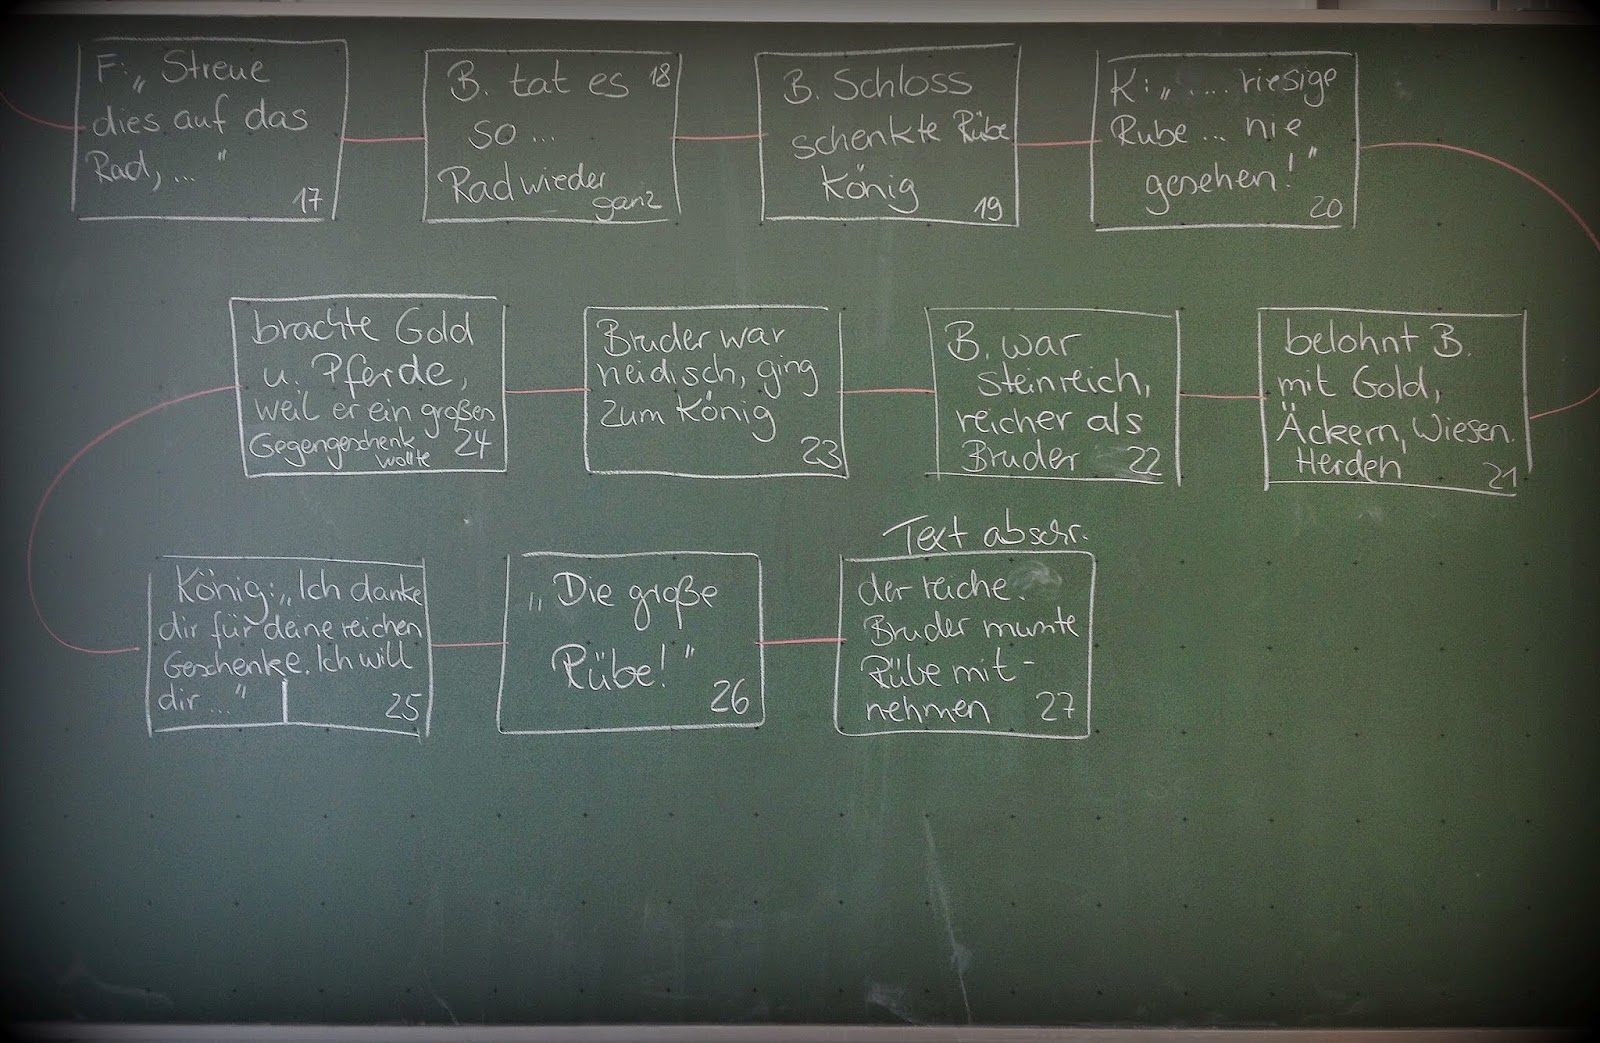 F: „Streue
dies auf das
Rad, ..."
17
B. tat es 18
so ...
Rad wieder
ganz
B. Schloss
schenkte Rübe
König
19
K: „.... riesige
Rübe ... nie
gesehen!"
20
belohnt B.
mit Gold,
Äckern, Wiesen.
Herden
21
B. war
steinreich,
reicher als
Bruder 22
Bruder war
neidisch, ging
zum König
23
brachte Gold
u. Pferde,
weil er ein großen
Gegengeschenk 24
wollte
König: „Ich danke
dir für deine reichen
Geschenke. Ich will
dir ..."
25
„Die große
Rübe!"
26
Text abschr.
der reiche.
Bruder musste
Rübe mit-
nehmen 27